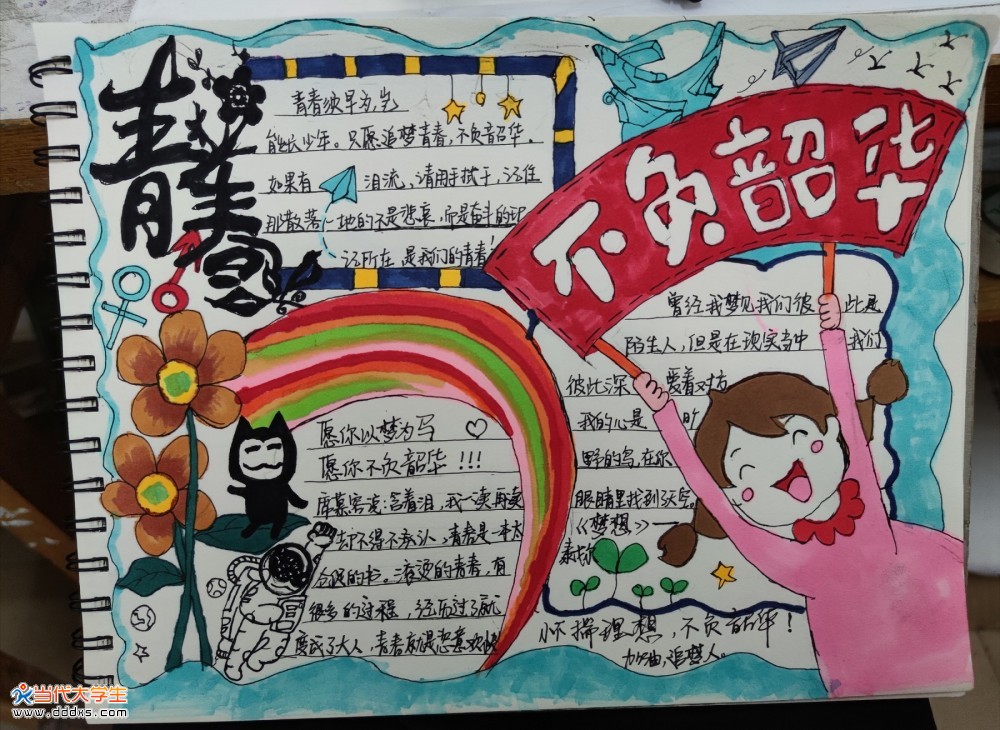 青春客
不负韶华
青春彼早为岁
能长少年。只愿追梦青春，不负韶华、
如果有 泪流，请用拭干，记住
那散落一地的不是悲哀，而是奋斗的印
记所在 是我们的青春
曾经我梦见我们彼此是
陌生人，但是在现实当中 我们
彼此深 爱着对方
我的心是 旷
野的鸟，在你
眼睛里找到了天空。
《梦想》—
泰戈尔
愿你以梦为马
愿你不负韶华 !!!
席慕容流：含着泪，我一读再读
却不得不承认，青春是一本太
仓促的书。滚烫的青春，有
很多的过程，经历过了就
变成了大人，青春就是恣意欢畅
心怀揣理想，不负韶华！
加油，追梦人。
当代大学生
www.dddxs.com